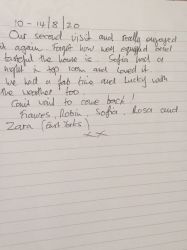 10-14/8/20
Our second visit and really enjoyed
it again. Forgot how well equipped and
tasteful the house is. Sofia had a
night in top room and loved it.
We had a fab time and lucky with
the weather too.
Can't wait to come back!
Frances, Robin, Sofia, Rosa and
Zara (East Yorks)
xx